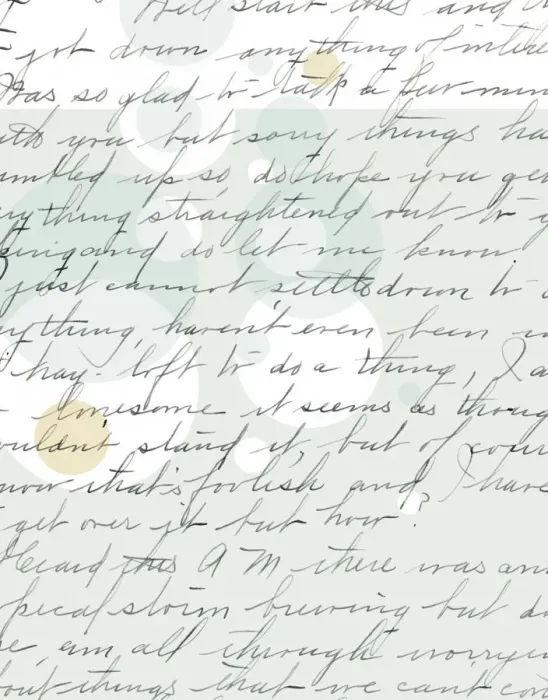 Will start this and
jot down anything of inter
was so glad to talk a few min
with you but sorry things ha
umbled up so, do hope you ge
erything straightened out to y
and do let me know
just cannot settle down to
nything, haven't even been
hay-loft to do a thing, I a
lonesome it seems as thoug
ouldn't stand it, but of cour
now that's foolish and I have
get over it but how?
Heard this A M there was an
storm brewing but d
e, am all through worryin
bout things that we can't con